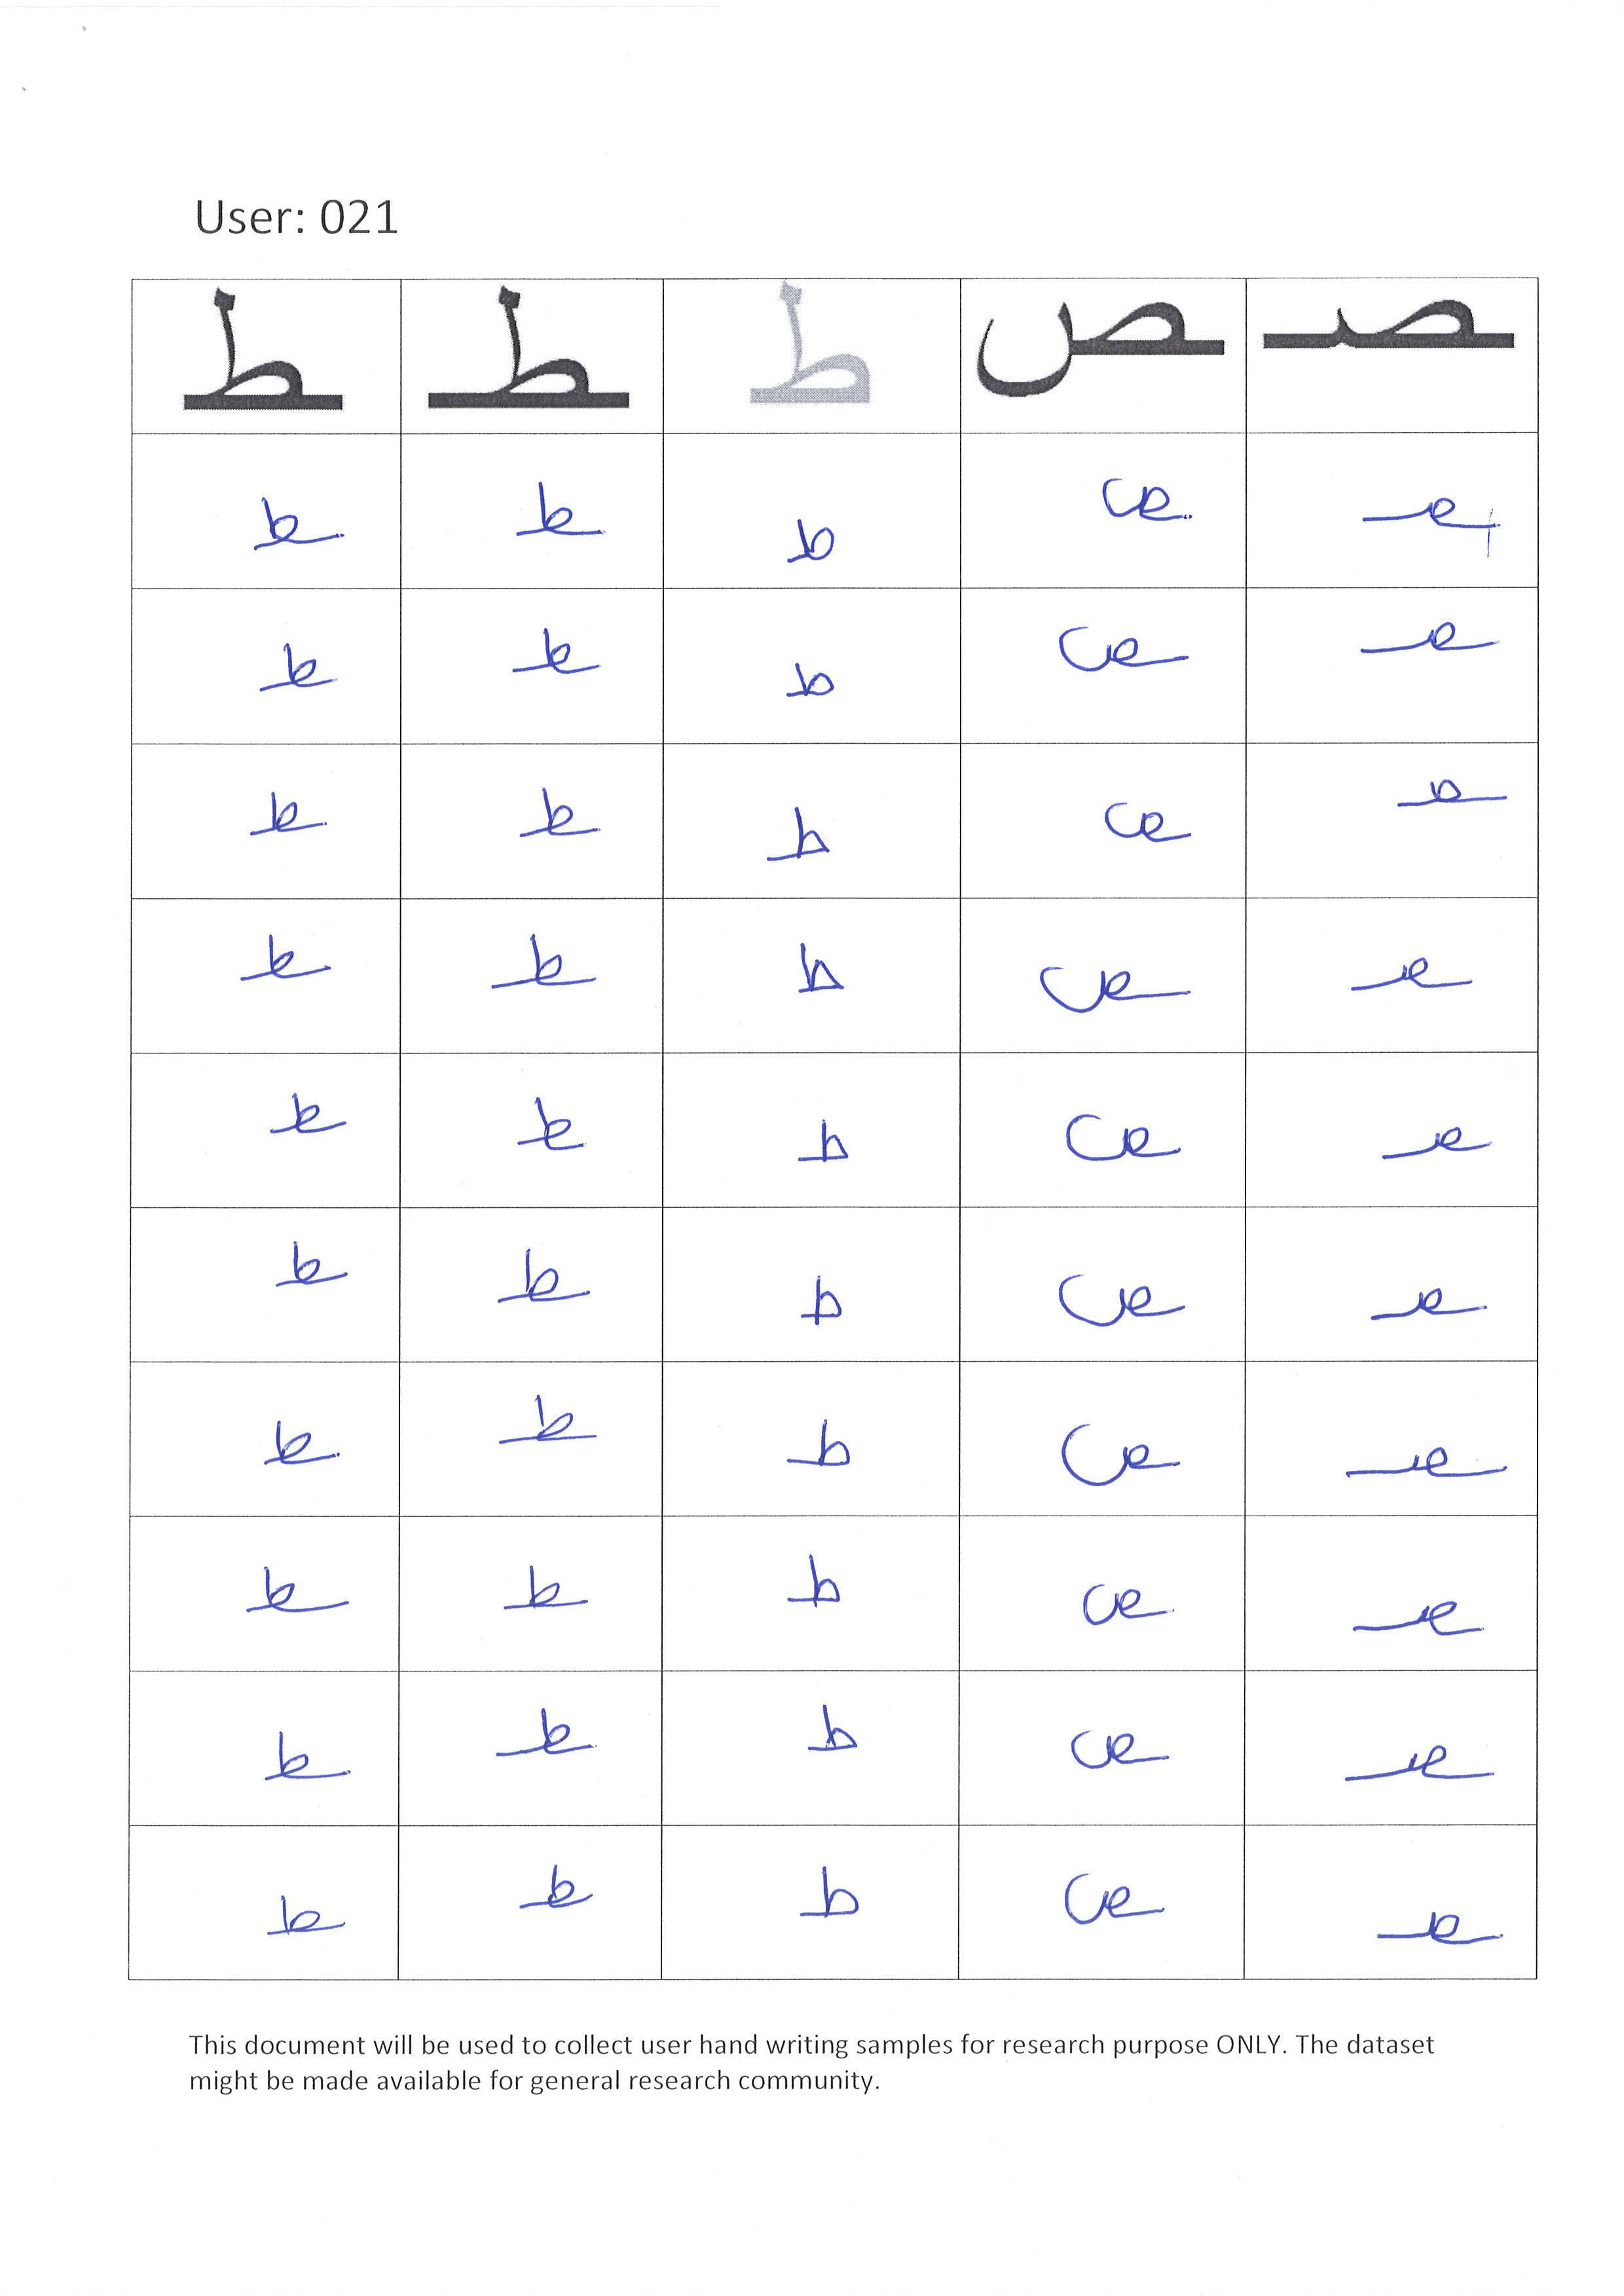 User: 021
ـصـ ـص ط ـطـ ـط
ـصـ ـص ط ـطـ ـط
ـصـ ـص ط ـطـ ـط
ـصـ ـص ط ـطـ ـط
ـصـ ـص ط ـطـ ـط
ـصـ ـص ط ـطـ ـط
ـصـ ـص ط ـطـ ـط
ـصـ ـص ط ـطـ ـط
ـصـ ـص ط ـطـ ـط
ـصـ ـص ط ـطـ ـط
ـصـ ـص ط ـطـ ـط
This document will be used to collect user hand writing samples for research purpose ONLY. The dataset
might be made available for general research community.